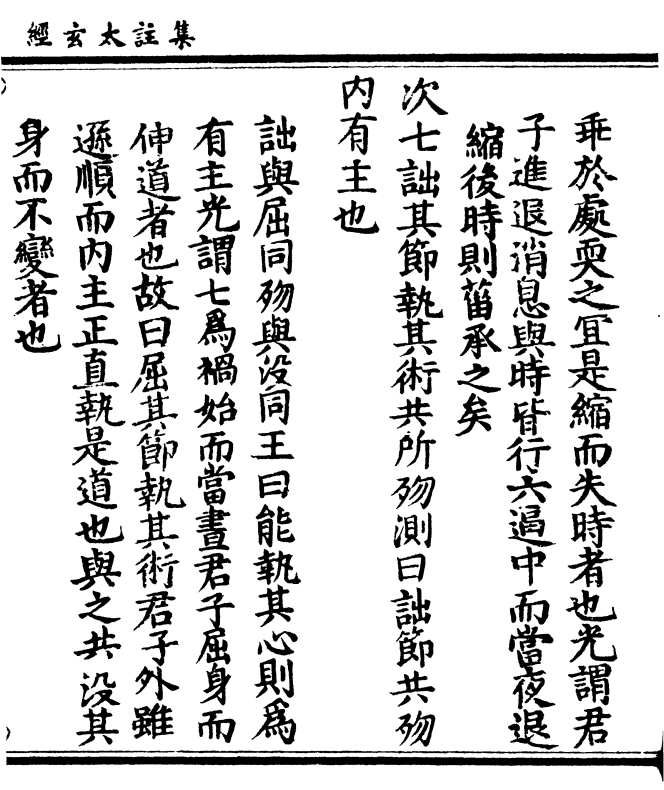 集註太玄經
乖於處耎之冝是縮而失時者也光謂君
子進退消息與時皆行六過中而當夜退
縮後時則菑承之矣
次七詘其節執其術共所歾測曰詘節共歾
内有主也
詘與屈同歾與没同王曰能執其心則爲
有主光謂七爲禍始而當晝君子屈身而
伸道者也故曰屈其節執其術君子外雖
遜順而内主正直執是道也與之共没其
身而不變者也